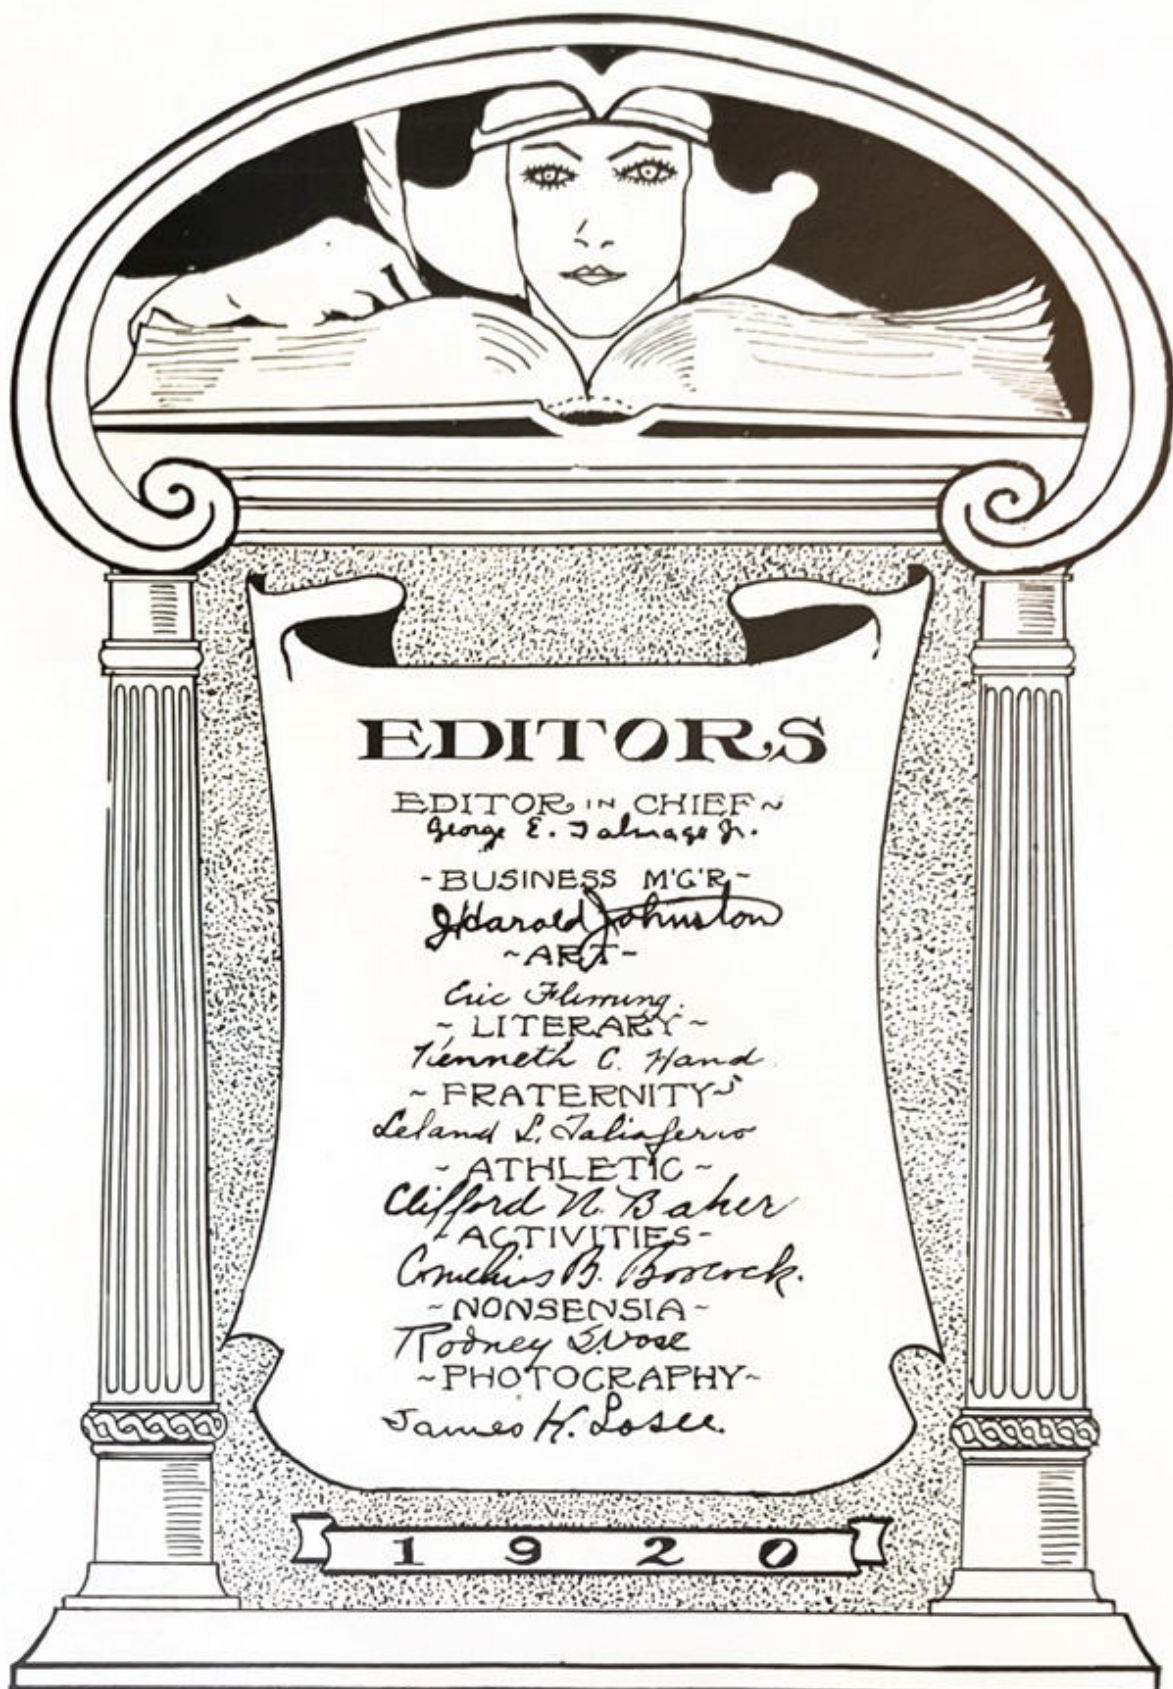 EDITORS
EDITOR IN CHIEF~
George E. Talmage Jr.
-BUSINESS M'G'R-
J Harold Johnston
~ART~
Eric Fleming.
~LITERARY~
Kenneth C. Hand
~FRATERNITY~
Leland L. Taliaferro
~ATHLETIC~
Clifford N. Baker
~ACTIVITIES-
Cornelius B. Boocock.
~NONSENSIA~
Rodney
~PHOTOGRAPHY~
James H. Losee.
1920